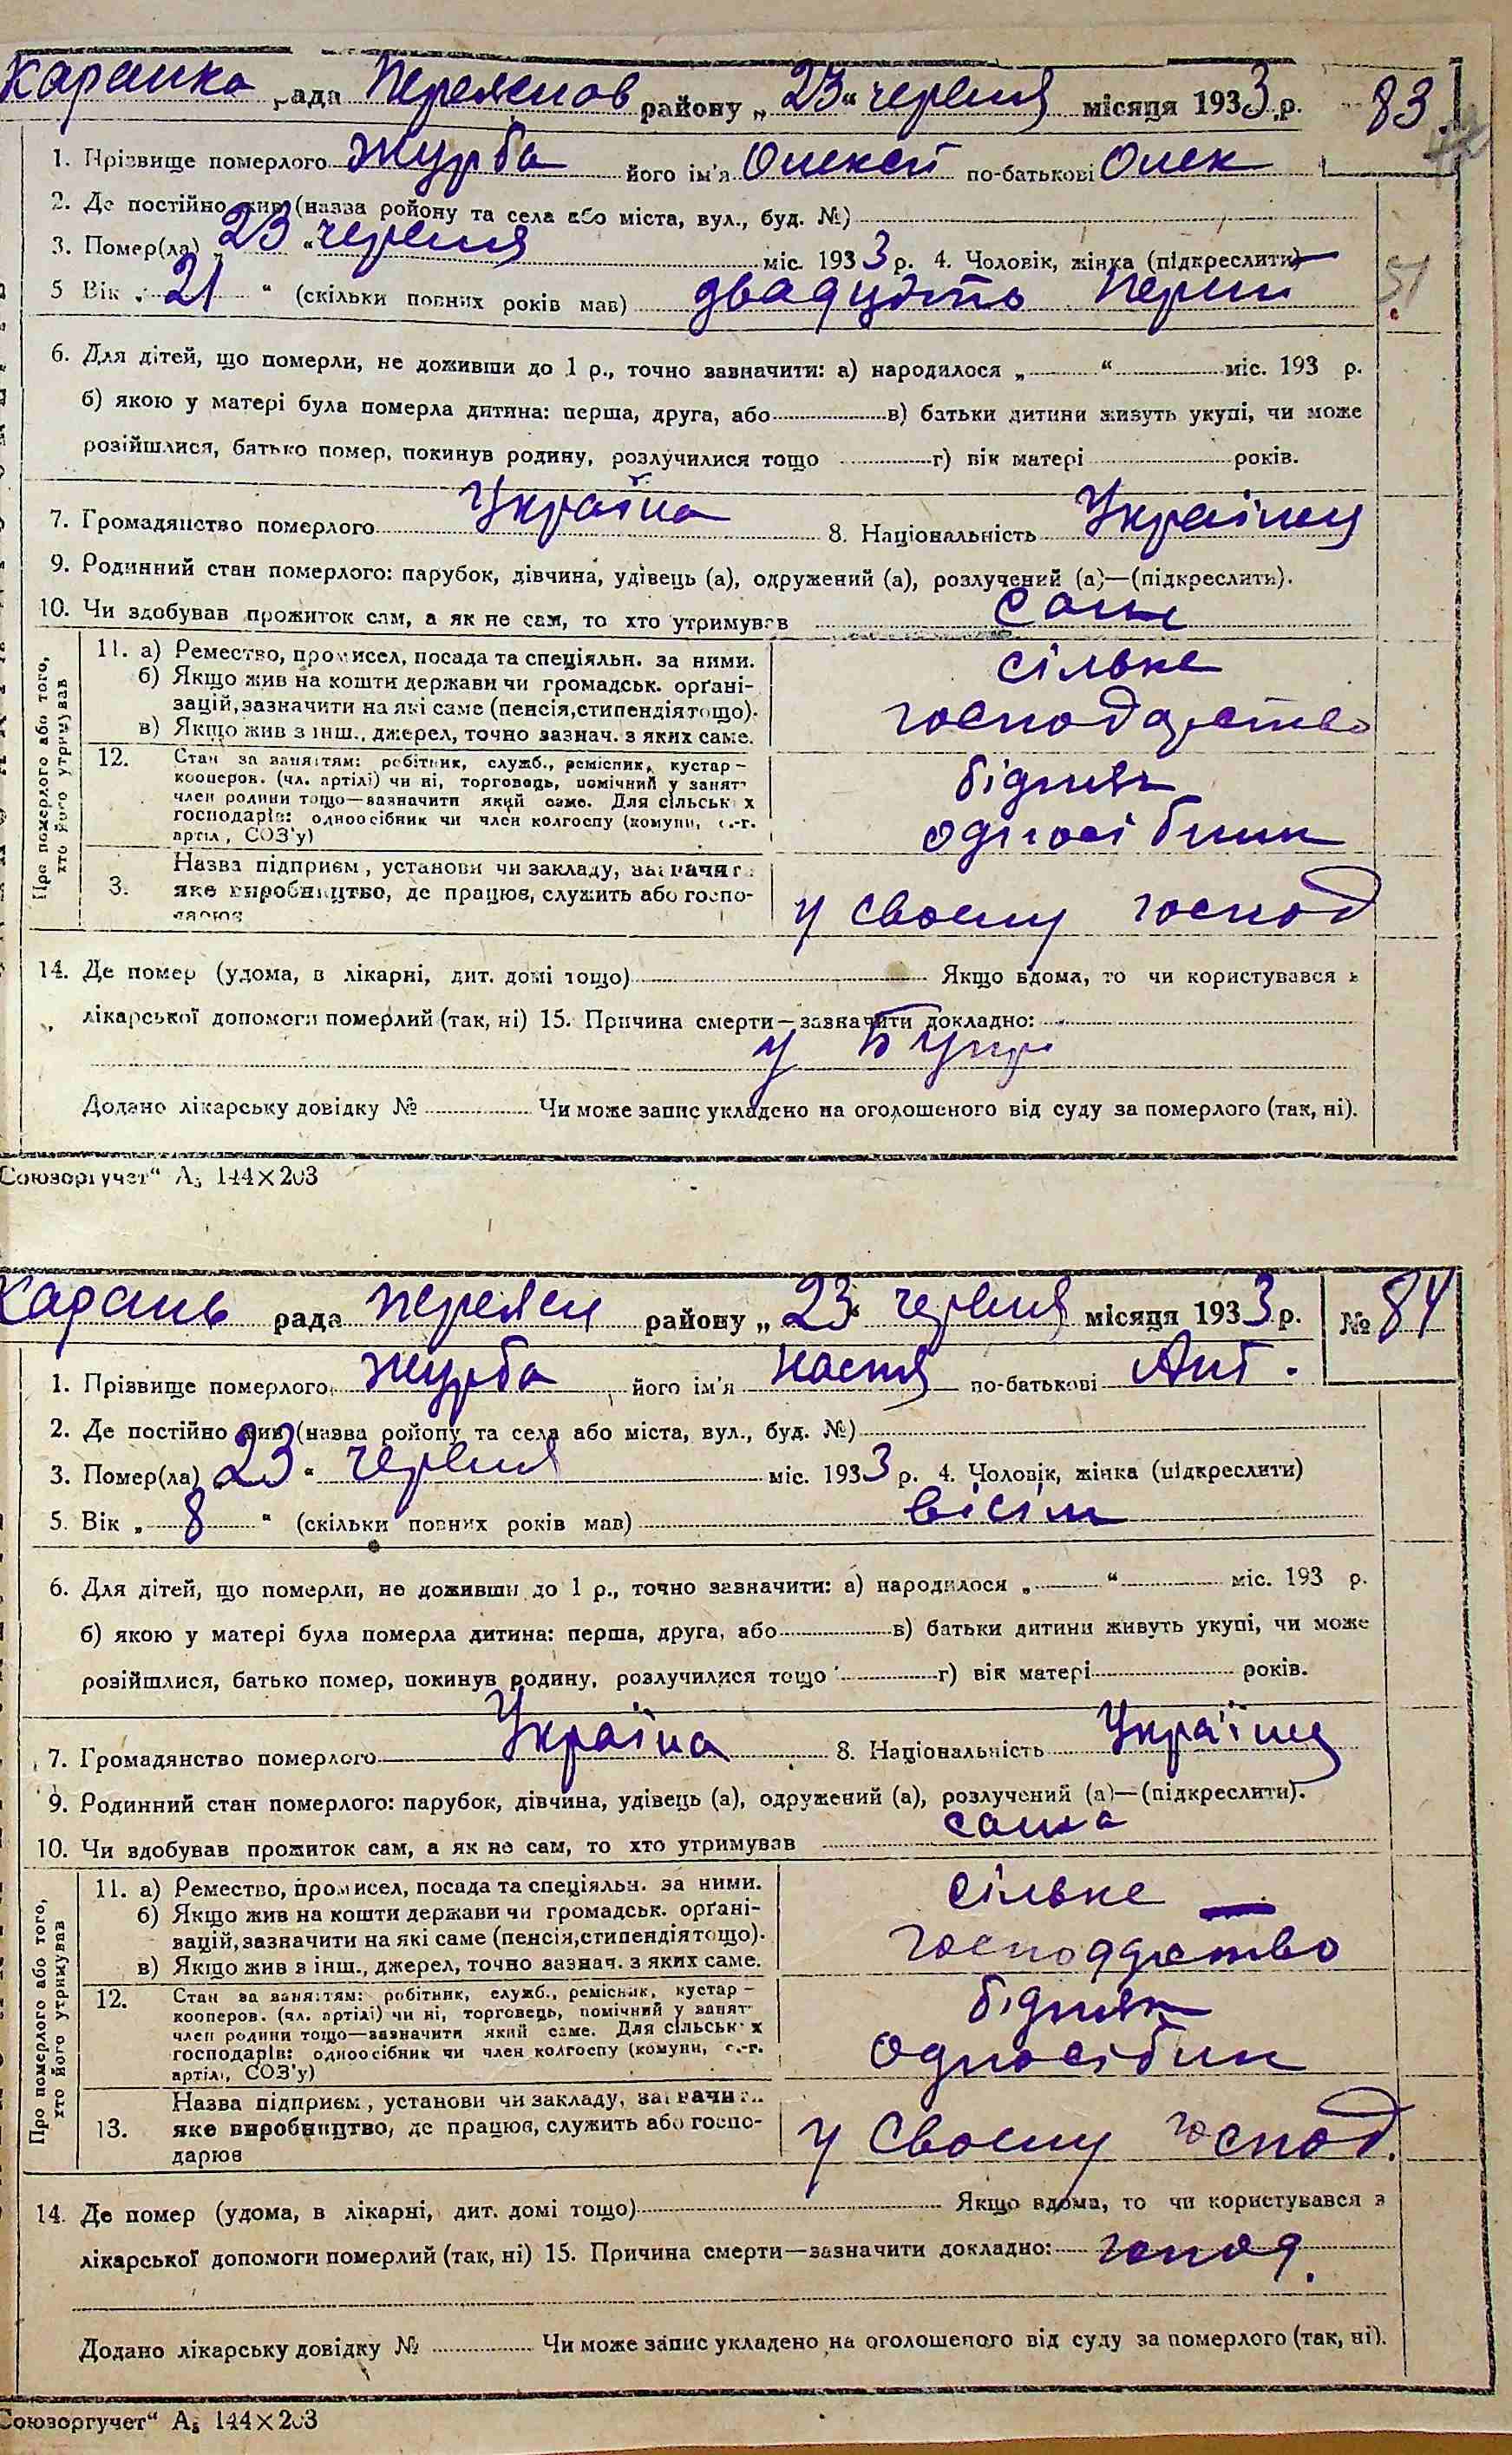 Каранка рада Переяслов району „23“ червня місяця 1933 р. 83
1. Прізвище померлого Журба його ім'я Олексій по-батькові Олек
2. Де постійно жив (назва ройону та села або міста, вул., буд. №)
3. Помер(ла) „23“ червня міс. 1933 р. 4. Чоловік, жінка (підкреслити)
51
5 Вік „21“ (скільки повних років мав) двадцять перш
6. Для дітей, що померли, не доживши до 1 р., точно зазначити: а) народилося „ “ міс. 193 р.
б) якою у матері була померла дитина: перша, друга, або в) батьки дитини живуть укупі, чи може
розійшлися, батько помер, покинув родину, розлучилися тощо г) вік матері років.
7. Громадянство померлого Україна 8. Національність Українец
9. Родинний стан померлого: парубок, дівчина, удівець (а), одружений (а), розлучений (а)—(підкреслить).
10. Чи здобував прожиток сам, а як не сам, то хто утримував сам
Про померлого або того, хто його утримував
11. а) Ремество, промисел, посада та спеціяльн. за ними. сільке
б) Якщо жив на кошти держави чи громадськ. орґані-
зацій, зазначити на які саме (пенсія, стипендія тощо). господарство
в) Якщо жив з інш., джерел, точно зазнач. з яких саме.
12. Стан за заняттям: робітник, служб., ремісник, кустар – бідняк
кооперов. (чл. артілі) чи ні, торговець, помічний у занят
член родини тощо—зазначити який саме. Для сільськ х
господарів: одноосібник чи член колгоспу (комуни, с.-г. односібник
артіл, СОЗ'у)
Назва підприєм, установи чи закладу, зазначит
3. яке виробництво, де працює, служить або госпо- у своему господ
дарює
14. Де помер (удома, в лікарні, дит. домі тощо) Якщо вдома, то чи користувався з
лікарської допомоги померлий (так, ні) 15. Причина смерти—зазначити докладно:
у Бупр
Додано лікарську довідку № Чи може запис укладено на оголошеного від суду за померлого (так, ні).
Союзоргучет“ А5 144×203
Карань рада переясл району „23“ червня місяця 1933 р. № 84
1. Прізвище померлого Журба його ім'я Настя по-батькові Ант.
2. Де постійно жив (назва ройону та села або міста, вул., буд. №)
3. Помер(ла) „23“ червня міс. 1933 р. 4. Чоловік, жінка (підкреслити)
5. Вік „8“ (скільки повних років мав) вісім
6. Для дітей, що померли, не доживши до 1 р., точно зазначити: а) народилося „ “ міс. 193 р.
б) якою у матері була померла дитина: перша, друга, або в) батьки дитини живуть укупі, чи може
розійшлися, батько помер, покинув родину, розлучилися тощо г) вік матері років.
7. Громадянство померлого Україна 8. Національність Українц
9. Родинний стан померлого: парубок, дівчина, удівець (а), одружений (а), розлучений (а)—(підкреслити).
10. Чи здобував прожиток сам, а як не сам, то хто утримував сама
Про померлого або того, хто його утримував
11. а) Ремество, промисел, посада та спеціяльн. за ними. сільке
б) Якщо жив на кошти держави чи громадськ. орґані-
зацій, зазначити на які саме (пенсія, стипендія тощо). господарство
в) Якщо жив в інш., джерел, точно зазнач. з яких саме.
12. Стан за заняттям: робітник, служб., ремісник, кустар – бідняк
кооперов. (чл. артілі) чи ні, торговець, помічний у занят
член родини тощо—зазначити який саме. Для сільськ х
господарів: одноосібник чи член колгоспу (комуни, с.-г. односібник
артілі, СОЗ'у)
Назва підприєм, установи чи закладу, зазначит
13. яке виробництво, де працює, служить або госпо- у своему господ.
дарює
14. Де помер (удома, в лікарні, дит. домі тощо) Якщо вдома, то чи користувався з
лікарської допомоги померлий (так, ні) 15. Причина смерти—зазначити докладно: голод.
Додано лікарську довідку № Чи може запис укладено на оголошеного від суду за померлого (так, ні).
Союзоргучет“ А5 144×203